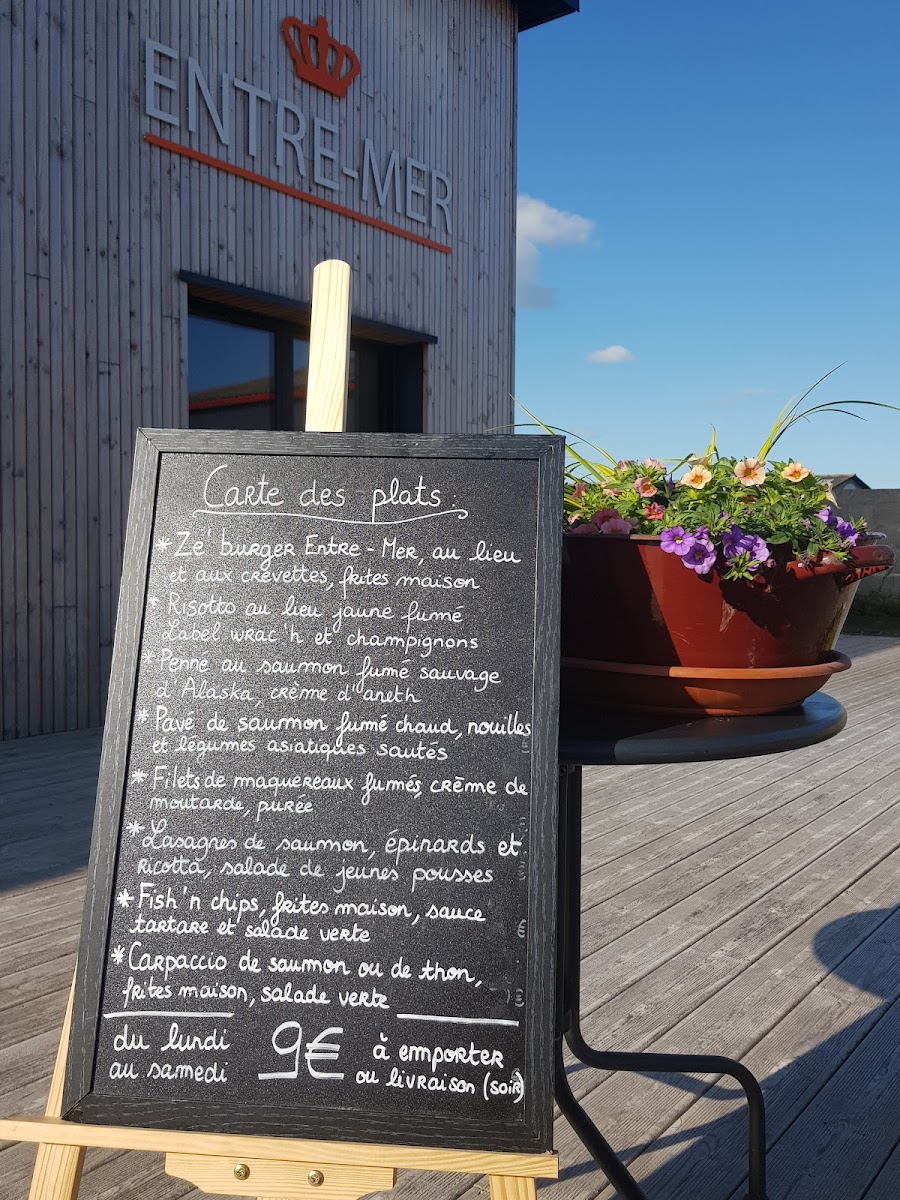 ENTRE-MER
Carte des plats :
* Zé'burger Entre-Mer, au lieu
et aux crevettes, frites maison
* Risotto au lieu jaune fumé
Label wrac'h et champignons
* Penné au saumon fumé sauvage
d'Alaska, crème d'aneth
* Pavé de saumon fumé chaud, nouilles
et légumes asiatiques sautés
* Filets de maquereaux fumés, crème de
moutarde, purée
* Lasagnes de saumon, épinards et
ricotta, salade de jeunes pousses
* Fish'n chips, frites maison, sauce
tartare et salade verte
€
* Carpaccio de saumon ou de thon,
frites maison, salade verte
€
du lundi
au samedi
9€
à emporter
ou livraison (soir)